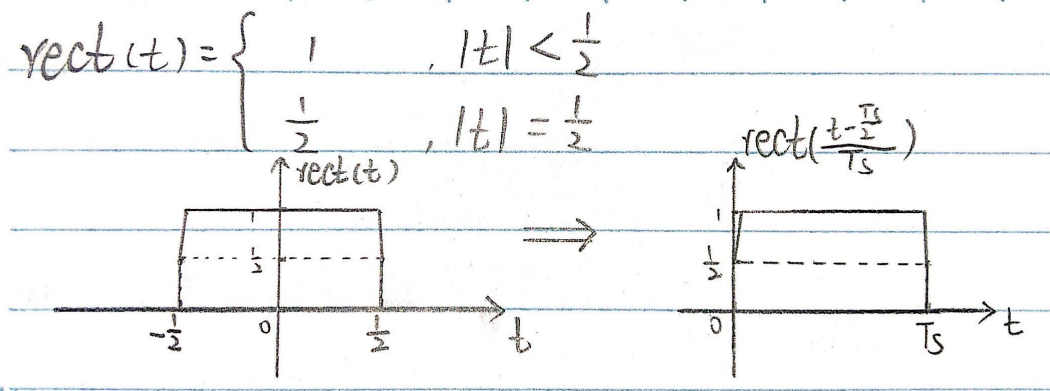 rect(t) = { 1 , |t| < 1/2
1/2 , |t| = 1/2
rect(t)
1
1/2
-1/2 0 1/2 t
⇒
rect((t - Ts/2)/Ts)
1
1/2
0 Ts t